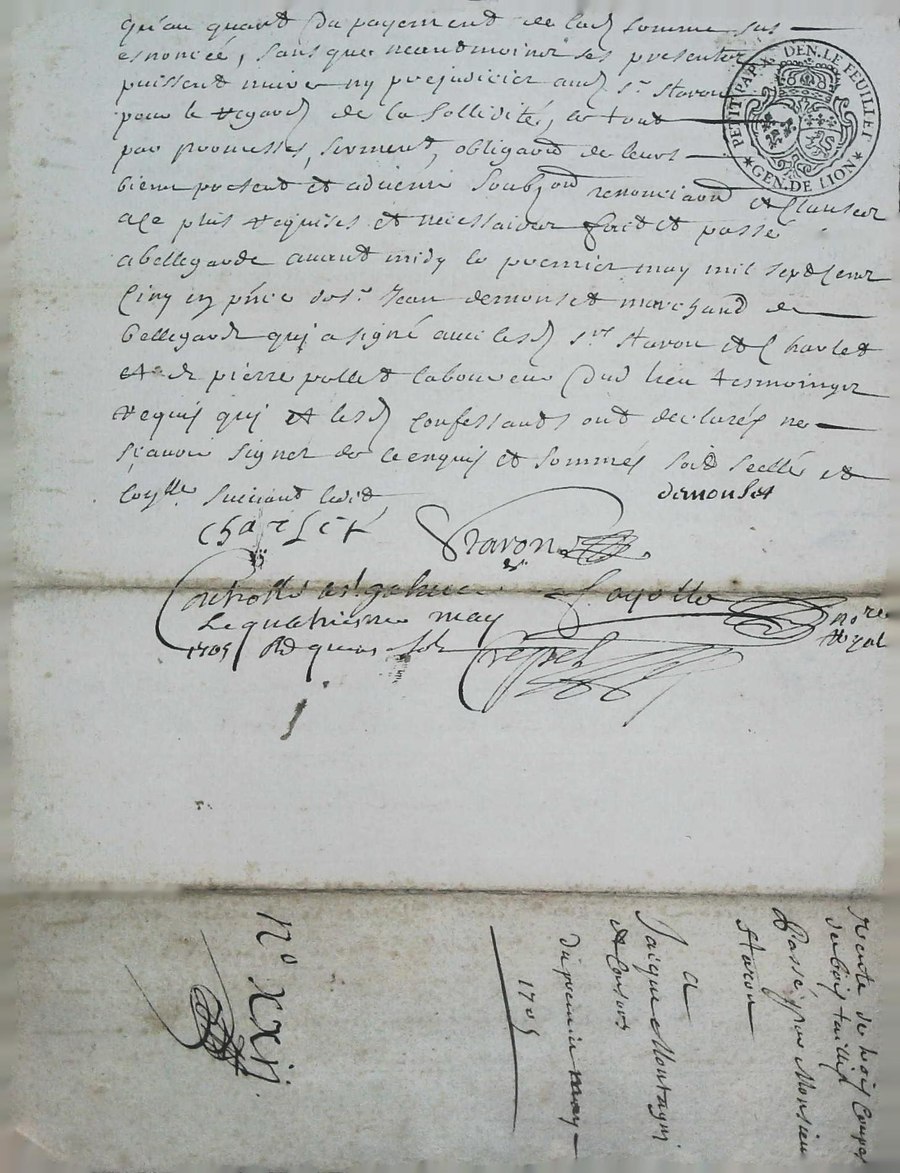 qu'au quard du payement de lad somme sus
esnoncée, sans que neantmoinns ses presentes
puissent nuire ny prejudicier aud sr. Staron
pour le regard de la sollidité, le tout
par promesses, serment, obligaõn de leurs
biens present et advenir soubz̃on renonciaõn et clauses
a ce plus requises et necessaires faict et passé
a bellegarde avant midy le premier may mil sept cent
cinq en pñce de sr. Jean demonset marchand de
bellegarde qui a signé avec lesd srs Staron et Charlet
et de pierre pollet laboureur dud lieu tesmoinges
requis qui et lesd confessants ont declarés ne
sçavoir signer de ce enquis et sommés soit scellé et
coñllé suivant ledit
demonset
Charlet
Staron
Controllé a st. galmier
Le quatriesme may
1705
Fayolle
nore
Royal
Crespet
PETIT PAP. X. DEN. LE FEUILLET
GEN. DE LION
Vente de bois Coupes
de bois taillis
Passé par Monsieur
Staron
a
Jaique Montagni
et Consors
du premier may
1705
no xxij